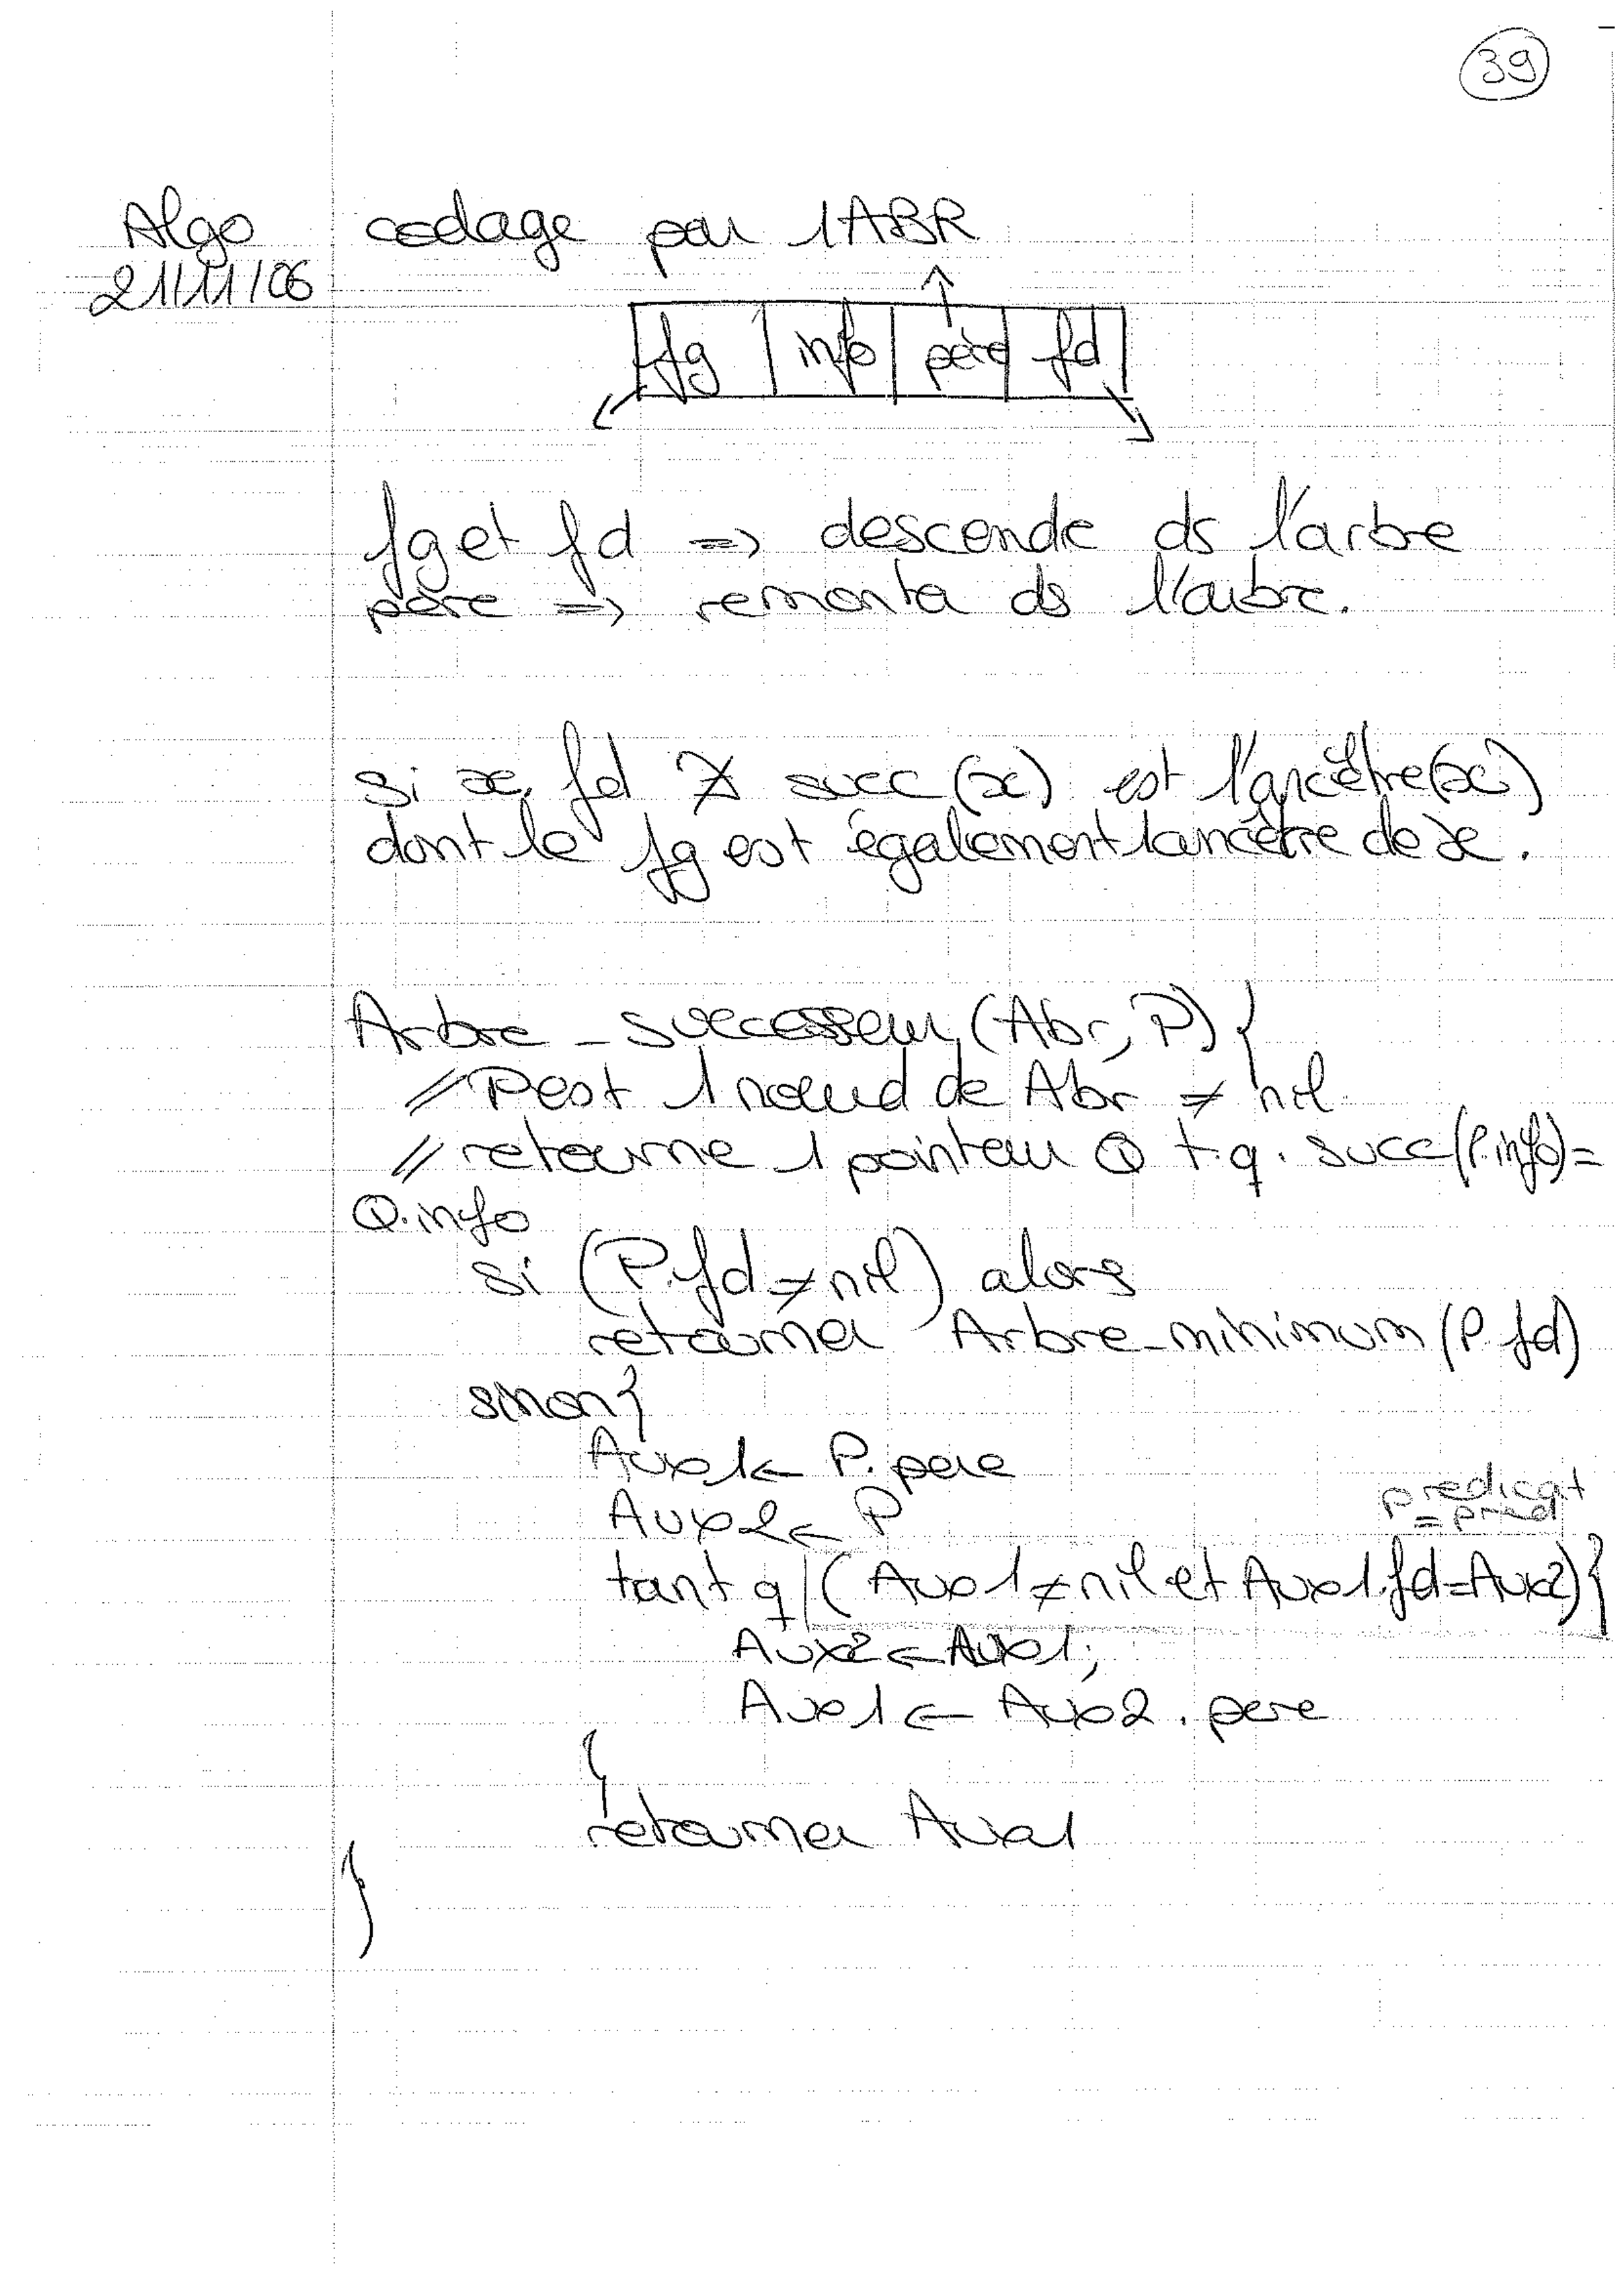 39
Algo
21/11/06
codage par 1ABR
fg | info | père | fd
fg et fd => descendre ds l'arbre
père => remonter ds l'arbre.
si x.fd ∄ succ(x) est l'ancêtre(x)
dont le fg est également l'ancêtre de x.
Arbre_successeur(Abr, P) {
// P est 1 nœud de Abr ≠ nil
// retourne 1 pointeur Q t.q. succ(P.info)=
Q.info
si (P.fd ≠ nil) alors
retourner Arbre_minimum(P.fd)
sinon {
Aux1 ← P.pere
Aux2 ← P
predicat
= pred
tant q (Aux1 ≠ nil et Aux1.fd = Aux2) {
Aux2 ← Aux1;
Aux1 ← Aux2.pere
}
retourner Aux1
}